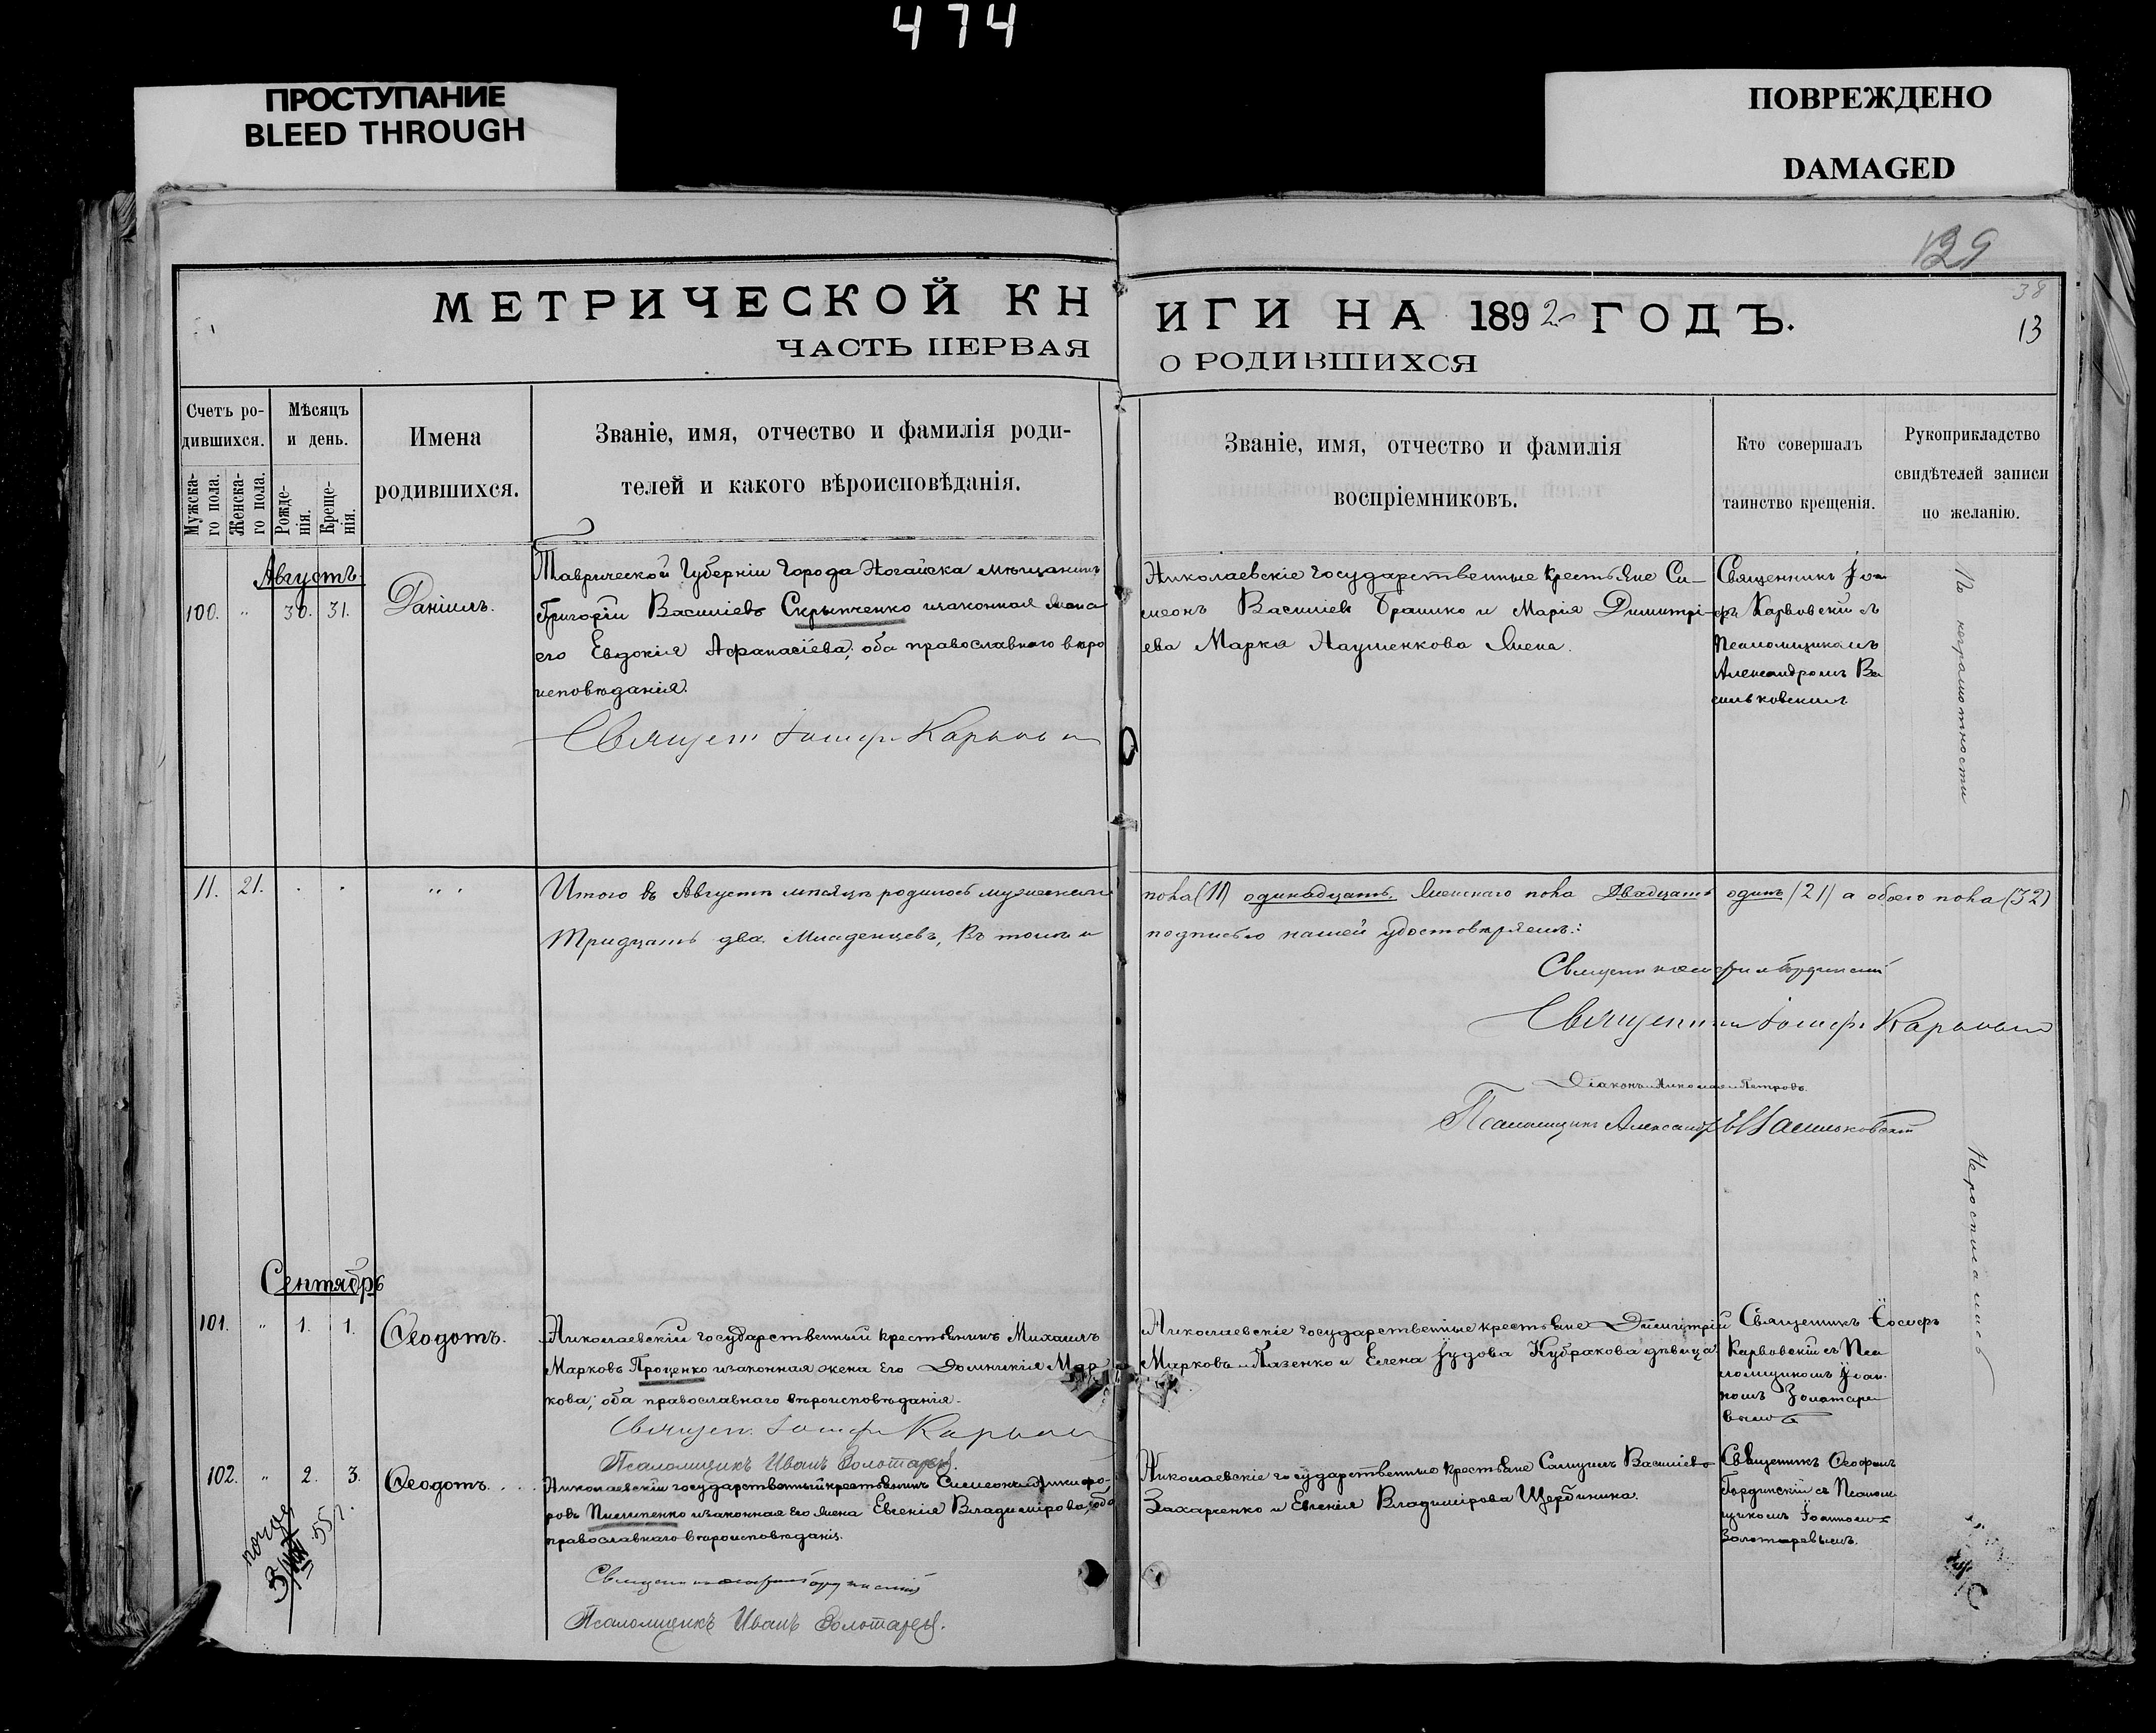 474
ПРОСТУПАНИЕ
BLEED THROUGH
ПОВРЕЖДЕНО
DAMAGED
129
38
13
МЕТРИЧЕСКОЙ КН
ИГИ НА 1892 ГОДЪ.
ЧАСТЬ ПЕРВАЯ
О РОДИВШИХСЯ
Счетъ ро-
дившихся.
Мужска-
го пола.
Женска-
го пола.
Мѣсяцъ
и день.
Рожде-
нія.
Креще-
нія.
Имена
родившихся.
Званіе, имя, отчество и фамилія роди-
телей и какого вѣроисповѣданія.
Званіе, имя, отчество и фамилія
воспріемниковъ.
Кто совершалъ
таинство крещенія.
Рукоприкладство
свидѣтелей записи
по желанію.
Августъ
100. " 30. 31. Даніилъ.
Таврической Губерніи Города Ногайска мѣщанинъ
Григорій Василіевъ Скрыпченко изаконная жена
его Евдокія Афанасіева; оба православнаго вѣро
исповѣданія.
Священ Іосиф Карвов
Николаевскіе государственные крестьяне Си-
меонъ Василіевъ Брашко и Марія Димитрі-
ева Марка Наушенкова жена.
Священникъ Іоси
фъ Карвовскій съ
Псаломщикомъ
Александромъ Ва
сильковскимъ
По неграмотности
11. 21.
Итого въ Августѣ мѣсяцѣ родилось мужескаго
пола (11) одинадцать, женскаго пола двадцать одинъ (21) а обоего пола (32)
Тридцать два Младенцевъ, Въ томъ и
подписью нашей удостовѣряемъ:
Священникъ Ѳеофилъ Гординскій
Священникъ Іосифъ Карвовскій
Діаконъ Николай Петровъ
Псаломщикъ Александръ Васильковскій
Сентябрь
101. " 1. 1. Ѳеодотъ.
Николаевскій государственный крестьянинъ Михаилъ
Марковъ Проценко изаконная жена его Домникія Мар
кова; оба православнаго вѣроисповѣданія.
Священ. Іосиф Карвов
Псаломщикъ Иванъ Золотарев.
Николаевскіе государственные крестьяне Димитрій
Марковъ Лазенко и Елена Іудова Кубракова дѣвица
Священникъ Іосифъ
Карвовскій съ Пса
ломщикомъ Іоан
номъ Золотаре
вымъ
102. " 2. 3. Ѳеодотъ.
Николаевскій государственный крестьянинъ Симеонъ Никифо
ровъ Пилипенко изаконная его жена Евгенія Владимірова, оба
православнаго вѣроисповѣданія.
Псаломщикъ Иванъ Золотарев.
Николаевскіе государственные крестьяне Самуилъ Василіевъ
Захарченко и Евгенія Владимірова Щербинина.
Священникъ Ѳеофилъ
Гординскій съ Псалом
щикомъ Іоанномъ
Золотаревымъ.
55г.